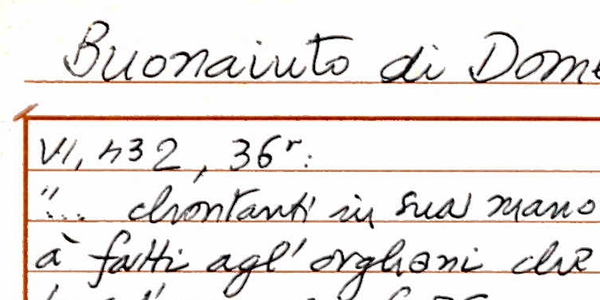 Buonaiuto di Dom
VI, 432, 36r:
"... chontanti in sua mano
à fatti agl' orghani che